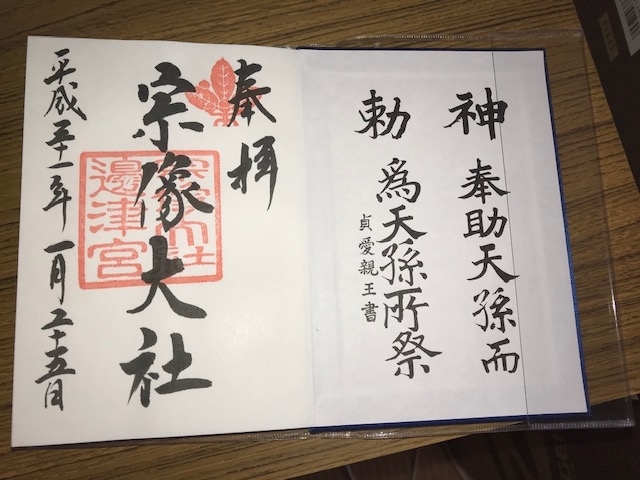 神勅
奉助天孫而
為天孫所祭
貞愛親王書
奉拝
宗像大社
宗像大社
邊津宮
平成三十一年一月二十五日